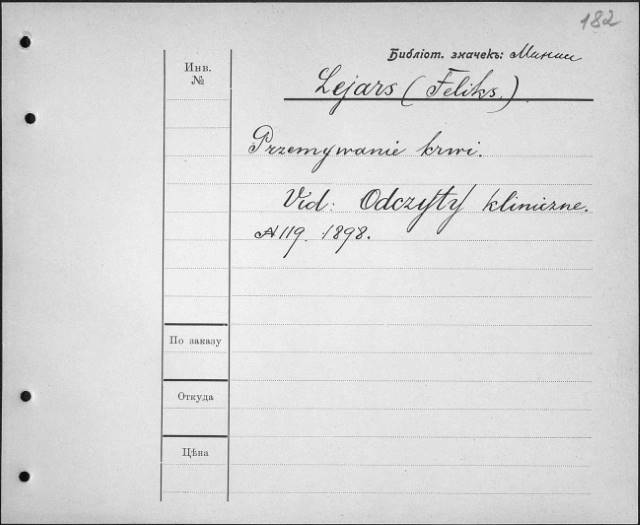 182
Библіот. значекъ:
Инв.
№
Lejars (Feliks.)
Przemywanie krwi.
Vid: Odczyty kliniczne.
№119. 1898.
По заказу
Откуда
Цѣна